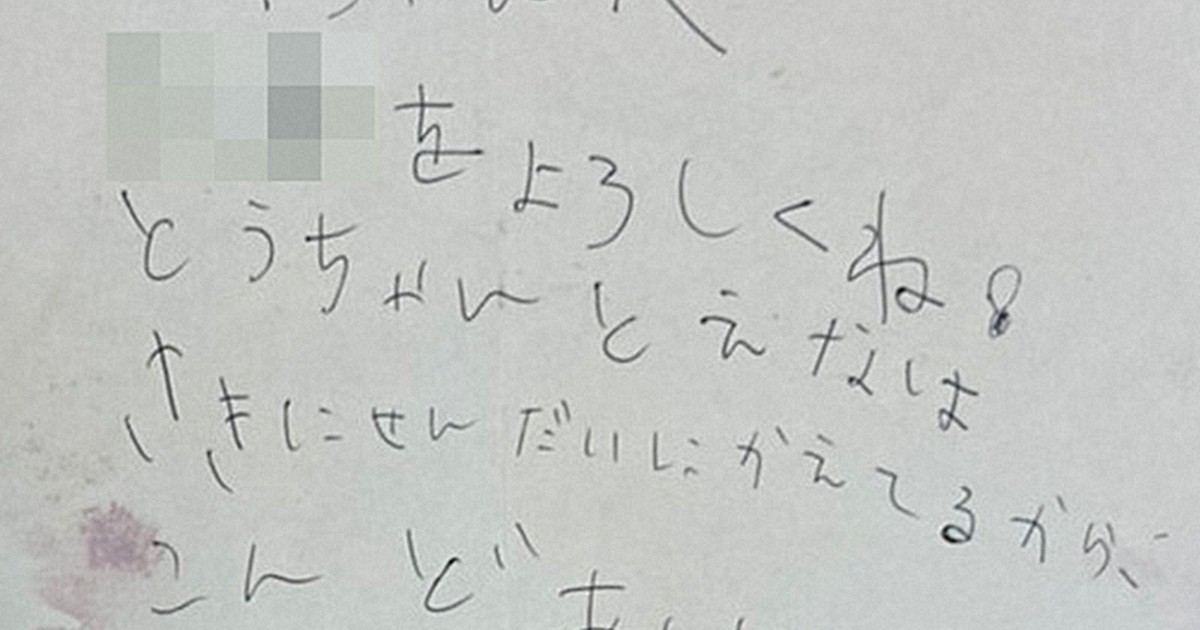 をよろしくね。
とうちゃんとえなは
さきにせんだいにかえてるから、
こんど